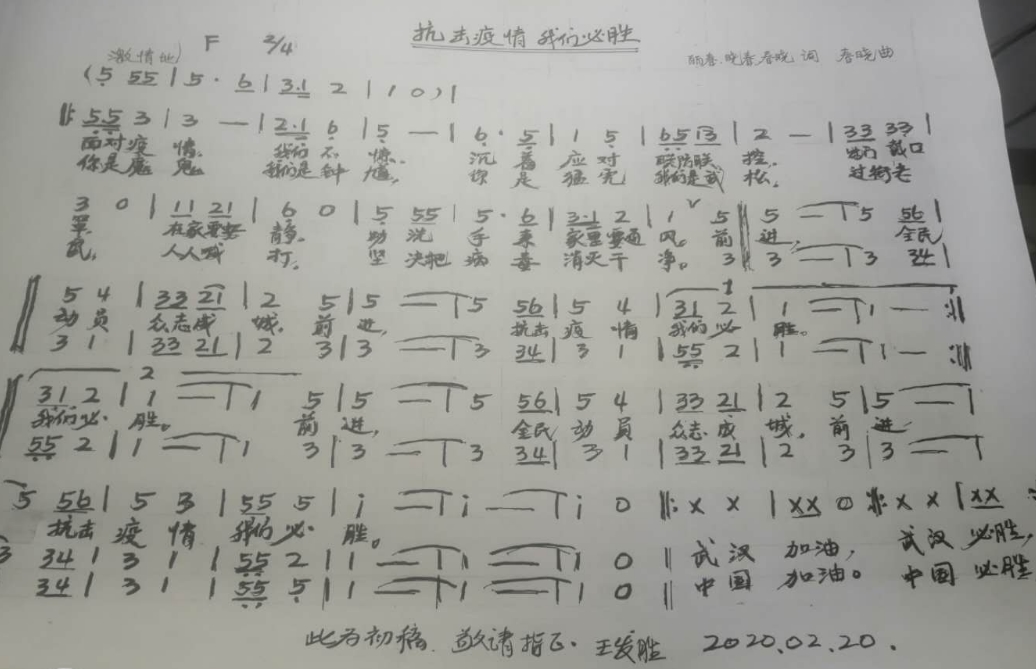 抗击疫情 我们必胜
激情地 F 2/4 丽春、晓春、春晓 词 春晓 曲
(5 55 | 5· 6 | 3·1 2 | 1 0) |
‖: 5·5 3 | 3 — | 2·1 6 | 5 — | 6· 5 | 1 5 | 65 13 | 2 — | 33 33 |
面对疫 情, 我们不 惊。 沉 着 应 对 联防联 控。 出门 戴口
你是魔 鬼 我们是钟 馗, 你 是 猛 兽 我们是武 松, 过街老
3 0 | 11 21 | 6 0 | 5 55 | 5· 6 | 3·1 2 | 1 ∨ 5 ‖ 5 — | 5 56 |
罩, 在家要安 静。 勤 洗 手 来 家里要通 风。 前 进, 全民
鼠, 人人喊 打。 坚 决把 病 毒 消灭干 净。 3 ‖ 3 — | 3 34 |
5 4 | 33 21 | 2 5 | 5 — | 5 56 | 5 4 | 31 2 | 1 — | 1 — :‖
动 员 众志成 城。 前 进, 抗击 疫 情 我们必 胜。
3 1 | 33 21 | 2 3 | 3 — | 3 34 | 3 1 | 55 2 | 1 — | 1 — :‖
2
31 2 | 1 — | 1 5 | 5 — | 5 56 | 5 4 | 33 21 | 2 5 | 5 — |
我们必 胜。 前 进, 全民 动 员 众志 成 城, 前 进
55 2 | 1 — | 1 3 | 3 — | 3 34 | 3 1 | 33 21 | 2 3 | 3 — |
5 56 | 5 3 | 55 5 | i — | i — | i 0 ‖: x x | xx 0 :‖: x x | xx :
抗击 疫 情 我们 必 胜。
3 34 | 3 1 | 55 2 | 1 — | 1 — | 1 0 ‖ 武 汉 加油, 武 汉 必胜,
34 | 3 1 | 55 5 | 1 — | 1 — | 1 0 ‖ 中 国 加油。 中 国 必胜
此为初稿、敬请指正·王发胜 2020.02.20.